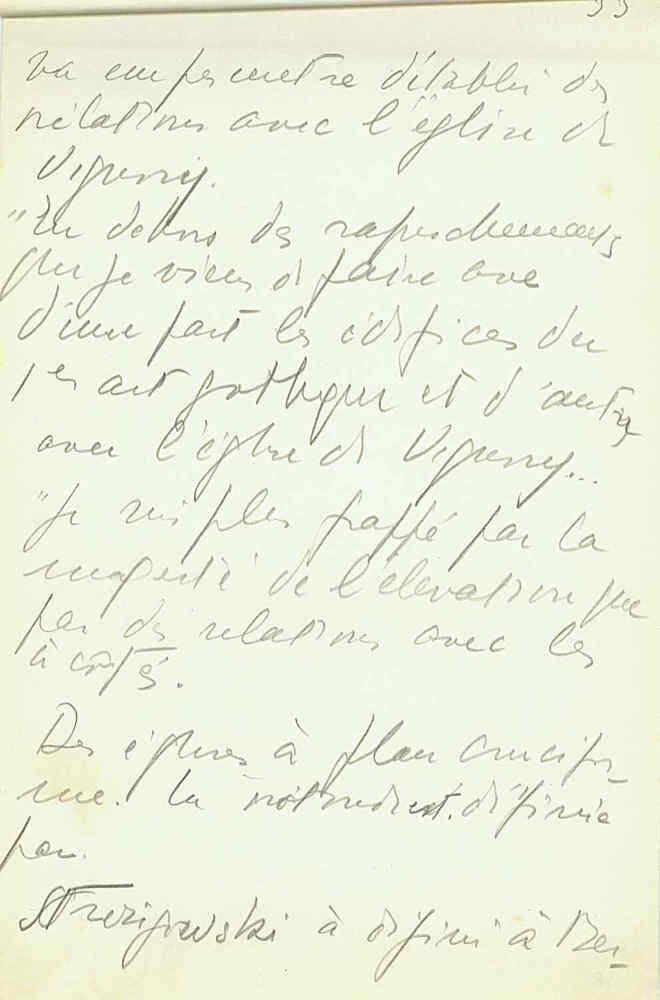 va en permettre d'établir des
rélations avec l'église de
Vignory.
"En dehors des rapprochements
que je viens de faire avec
d'une part les édifices du
1er art gothique et d'autre
avec l'église de Vignory...
"Je suis plus frappé par la
majesté de l'élévation que
par des relations avec les
à côtés.
Des églises à plan crucifor-
me. La est définie
par.
Strzygowski à défini à Ber-